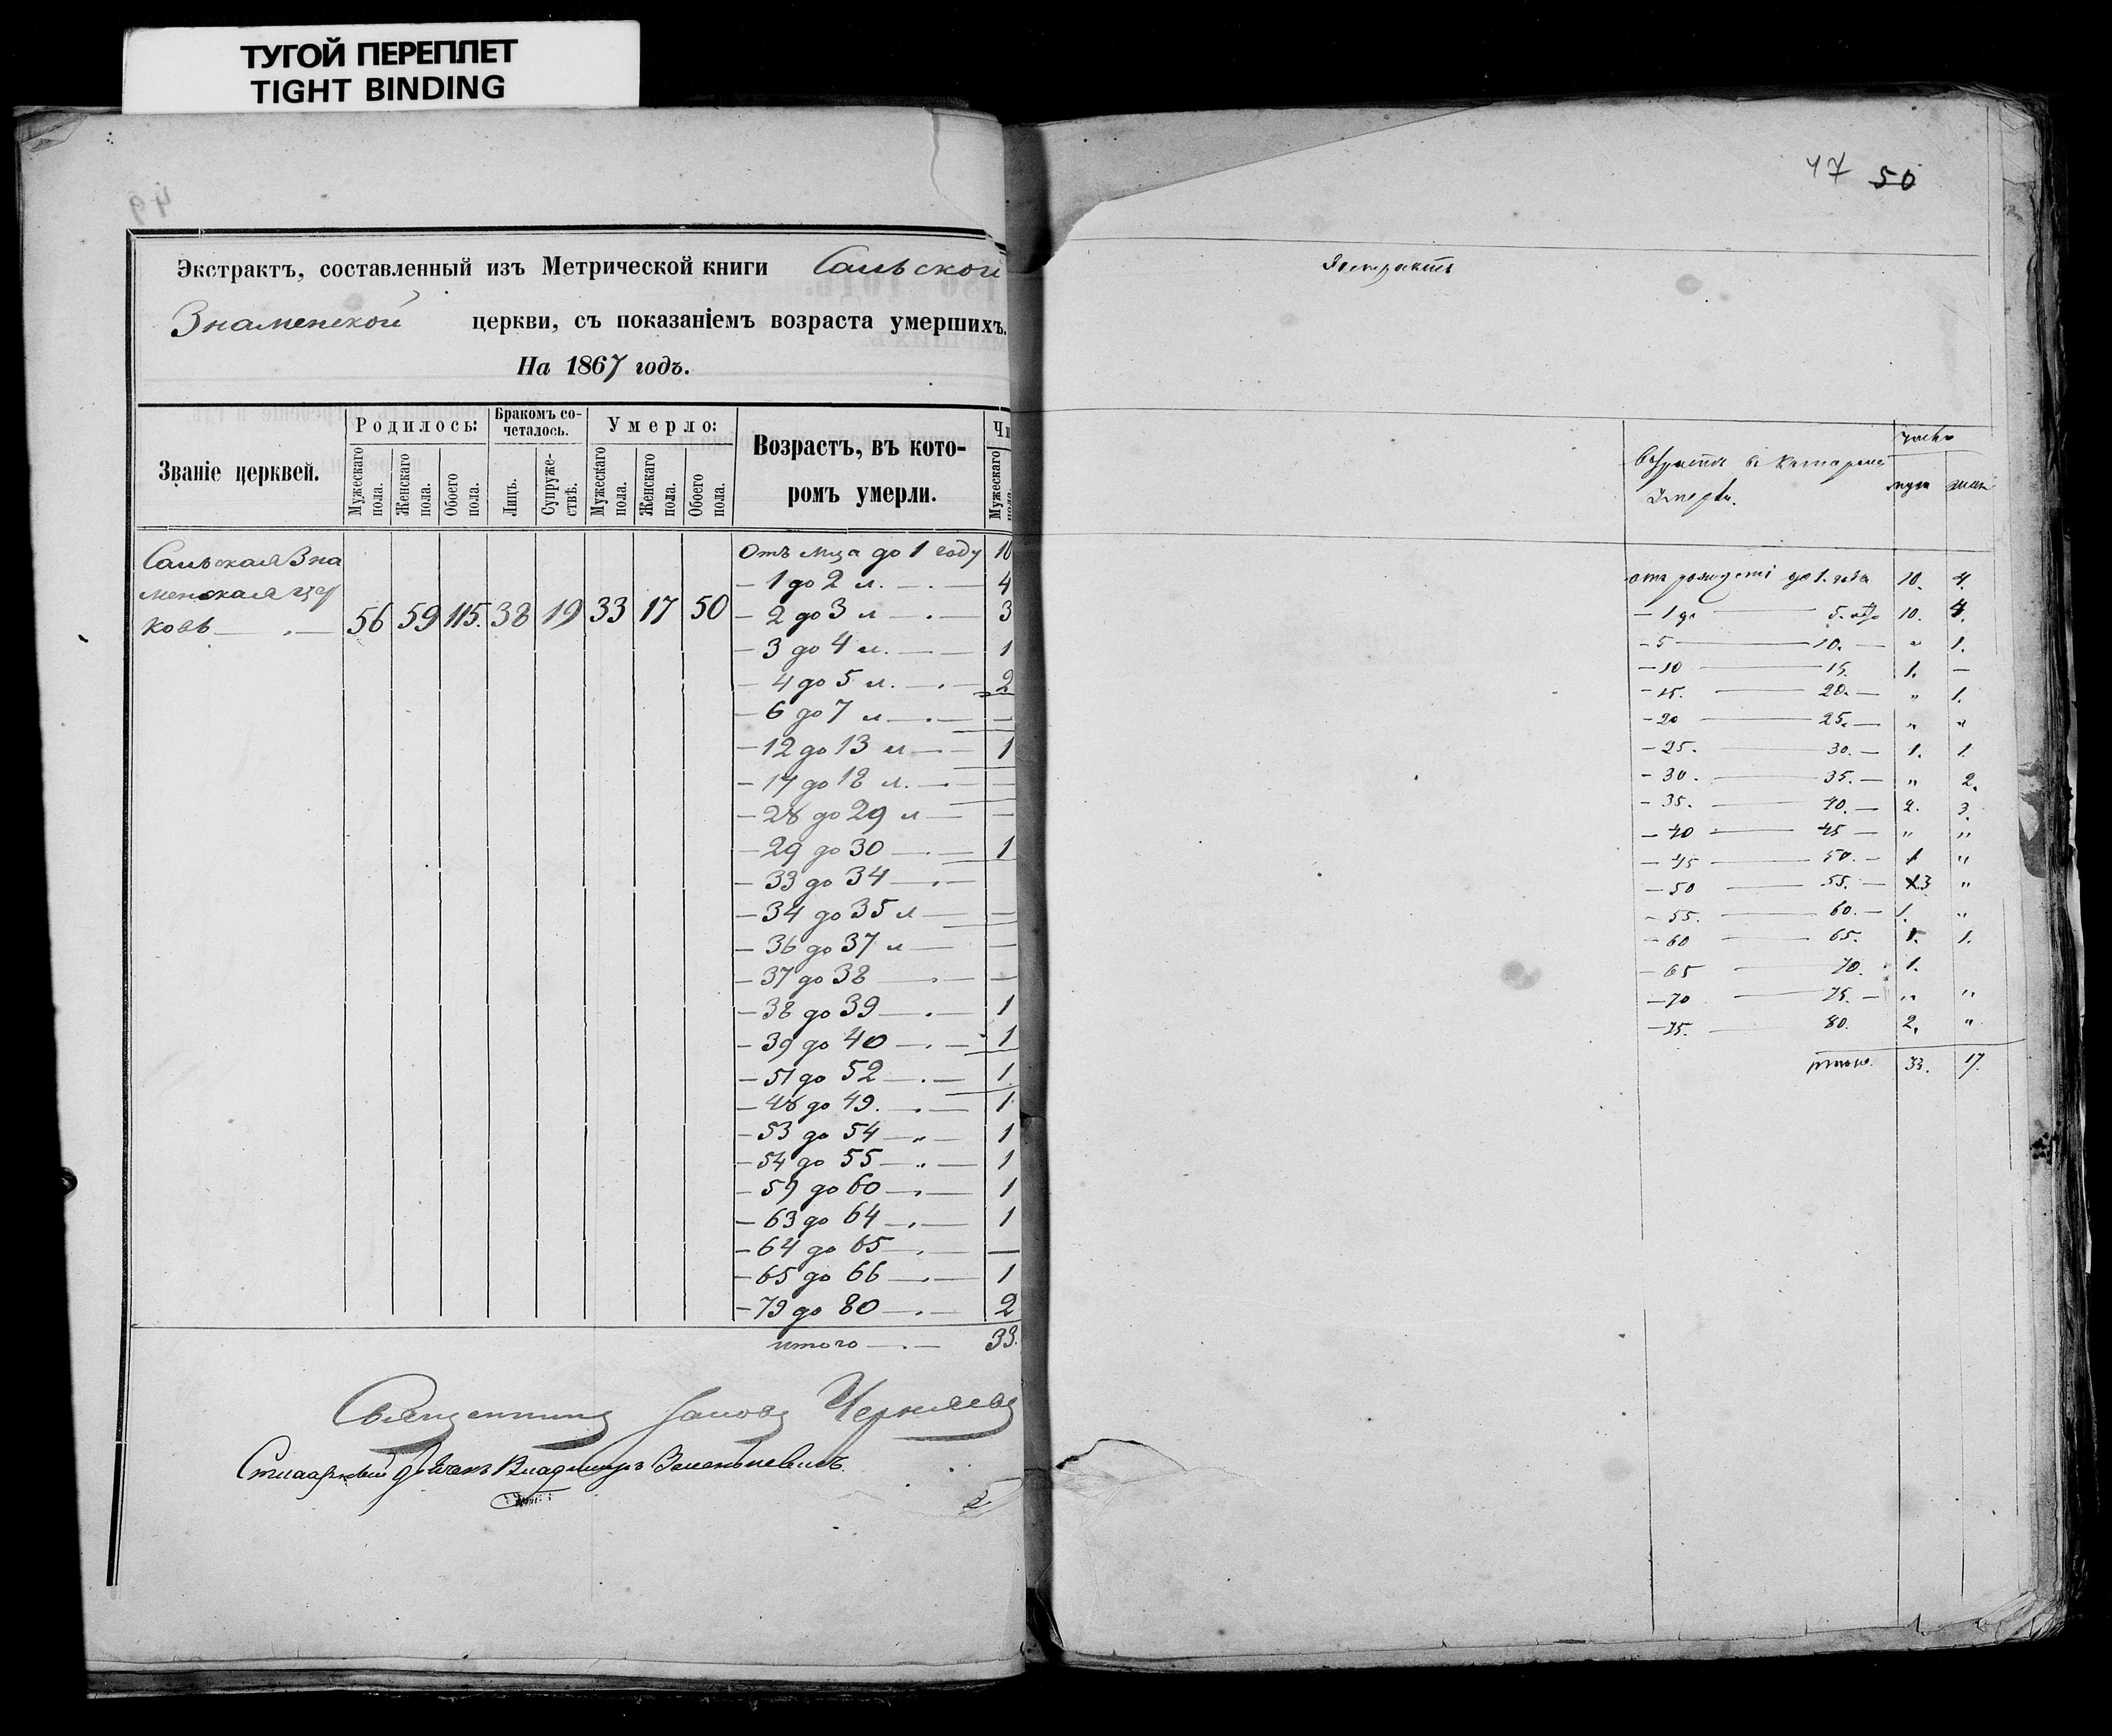 ТУГОЙ ПЕРЕПЛЕТ
TIGHT BINDING
49
Экстрактъ, составленный изъ Метрической книги Сальской
Знаменской церкви, съ показаніемъ возраста умершихъ.
На 1867 годъ.
Званіе церквей.
Родилось:
Бракомъ со-
четалось.
Умерло:
Возрастъ, въ кото-
ромъ умерли.
Чи
Мужескаго пола.
Женскаго пола.
Обоего пола.
Лицъ.
Супруже-
ствѣ.
Мужескаго пола.
Женскаго пола.
Обоего пола.
Мужескаго пола.
Сальская Зна
менская цер
ковь 56 59 115. 38 19 33 17 50
Отъ мца до 1 году 10
— 1 до 2 л. — 4
— 2 до 3 л — 3
— 3 до 4 л. — 1
— 4 до 5 л. — 2
— 6 до 7 л — —
— 12 до 13 л — 1
— 17 до 18 л. — —
— 28 до 29 л — —
— 29 до 30 — 1
— 33 до 34 —
— 34 до 35 л — —
— 36 до 37 л — —
— 37 до 38 — —
— 38 до 39 — 1
— 39 до 40 — 1
— 51 до 52 — 1
— 48 до 49. — 1
— 53 до 54 — 1
— 54 до 55 — 1
— 59 до 60 — 1
— 63 до 64 — 1
— 64 до 65 — —
— 65 до 66 — 1
— 79 до 80 — 2
итого — 33.
Священникъ Черняевъ
Владимиръ
47 50
Экстрактъ
Возрастъ въ которомъ
умерли.
число
муж жен
отъ рожденія до 1. года 10. 4.
— 1 до — 5. 10. 4.
— 5 — 10. — " 1.
— 10 — 15. 1. —
— 15. — 20. — " 1.
— 20 — 25. — " "
— 25. — 30. — 1. 1.
— 30. — 35. — " 2.
— 35. — 40. — 2. 3.
— 40 — 45 — " "
— 45 — 50. — 1 "
— 50 — 55. — 3 "
— 55. — 60. — 1. "
— 60 — 65. 1. 1.
— 65 — 70. 1.
— 70 — 75. — " "
— 75. — 80. 2. "
итого. 33. 17.